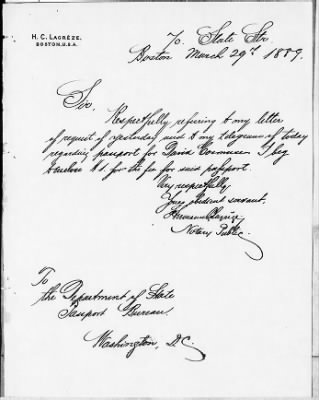 H. C. LACRÈZE.
BOSTON, U.S.A.
70. State Str.
Boston March 29th 1889.
Sir.
Respectfully referring to my letter
of request of yesterday and to my telegram of today
regarding passport for David I beg
to enclose for the fee for said passport.
Very respectfully
Your obedient servant,
Notary Public.
To
the Department of State
Passport Bureau,
Washington, D.C.